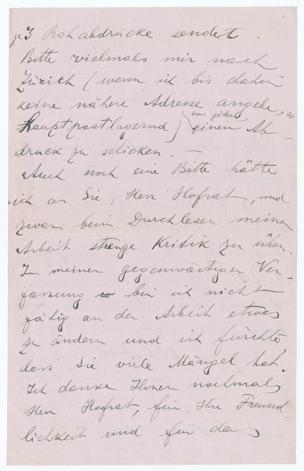 je 3 Rohabdrücke sendet.
Bitte vielmals mir nach
Zürich (wenn ich bis dahin
keine nähere Adresse angebe,
Hauptpostlagernd) von jedem einen Ab-
druck zu schicken. —
Auch noch eine Bitte hätte
ich an Sie, Herr Hofrat, und
zwar beim Durchlesen meiner
Arbeit strenge Kritik zu üben.
In meiner gegenwärtigen Ver-
fassung bin ich nicht
fähig an der Arbeit etwas
zu ändern und ich fürchte,
dass Sie viele Mängel hat.
Ich danke Ihnen nochmals
Herr Hofrat, für Ihre Freund-
lichkeit und für das